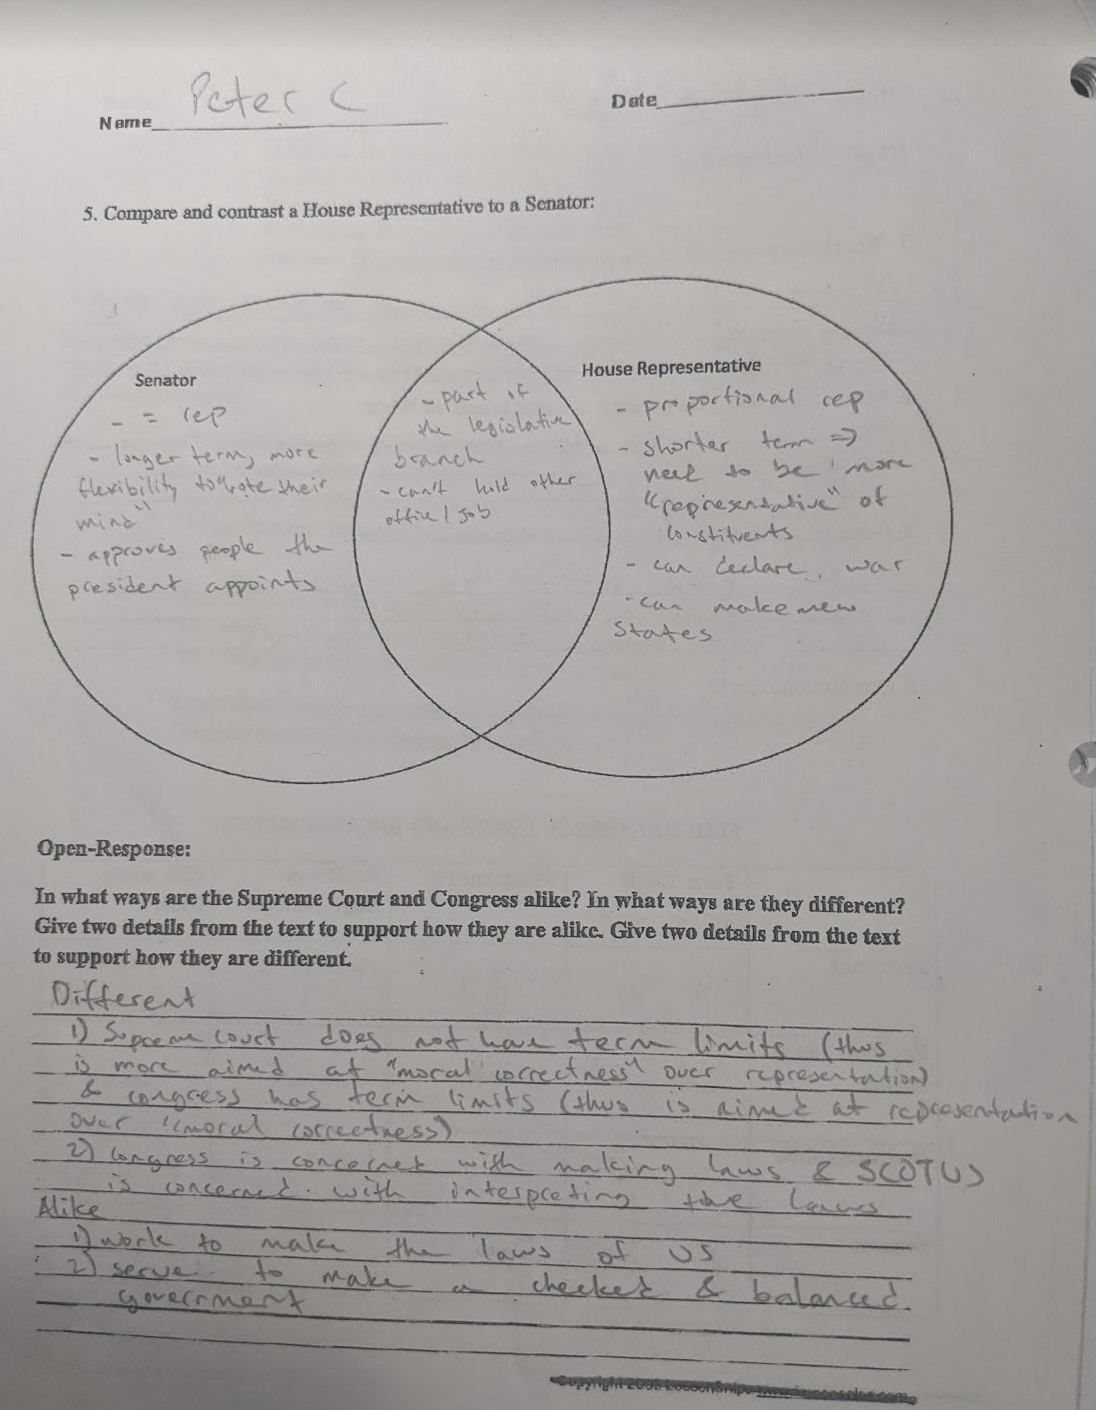 Name Peter C
Date
5. Compare and contrast a House Representative to a Senator:
Senator
- = rep
- longer term, more
flexibility to "vote their
mind"
- approves people the
president appoints
- part of
the legislative
branch
- can't hold other
office / job
House Representative
- proportional rep
- shorter term ⇒
need to be more
"representative" of
constituents
- can declare war
- can make new
states
Open-Response:
In what ways are the Supreme Court and Congress alike? In what ways are they different?
Give two details from the text to support how they are alike. Give two details from the text
to support how they are different.
Different
1) Supreme court does not have term limits (thus
is more aimed at "moral correctness" over representation)
& congress has term limits (thus is aimed at representation
over "moral correctness)
2) Congress is concerned with making laws & SCOTUS
is concerned with interpreting the laws
Alike
1) work to make the laws of US
2) serve to make a checked & balanced.
government
Copyright